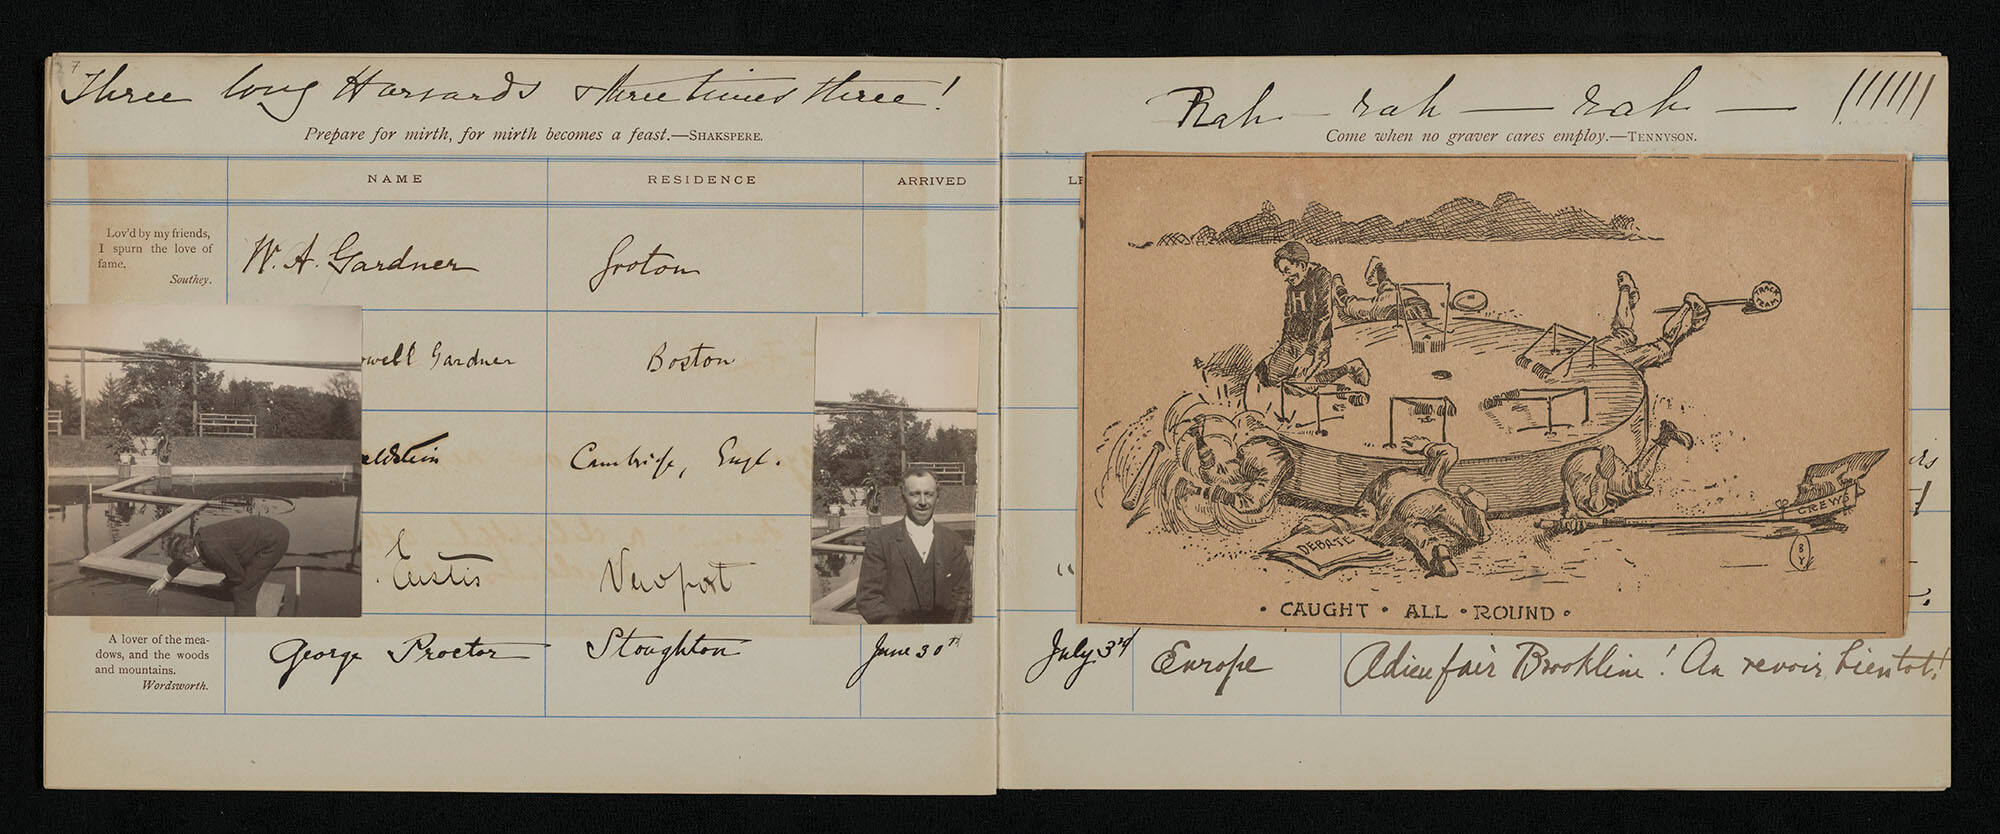 7
Three long Harvards & three times three!
Prepare for mirth, for mirth becomes a feast.—SHAKSPERE.
NAME RESIDENCE ARRIVED
Lov'd by my friends,
I spurn the love of
fame.
Southey.
W. A. Gardner Groton
owell Gardner Boston
aldstein Cambridge, Engl.
Eustis Newport
A lover of the mea-
dows, and the woods
and mountains.
Wordsworth.
George Proctor Stoughton June 30th
Rah – rah — rah — !!!!!!
Come when no graver cares employ.—TENNYSON.
LE
H
TRACK
TEAM
DEBATE
CREWS
B
Y
· CAUGHT · ALL · ROUND ·
July 3rd Europe Adieu fair Brookline! Au revoir, bientot!